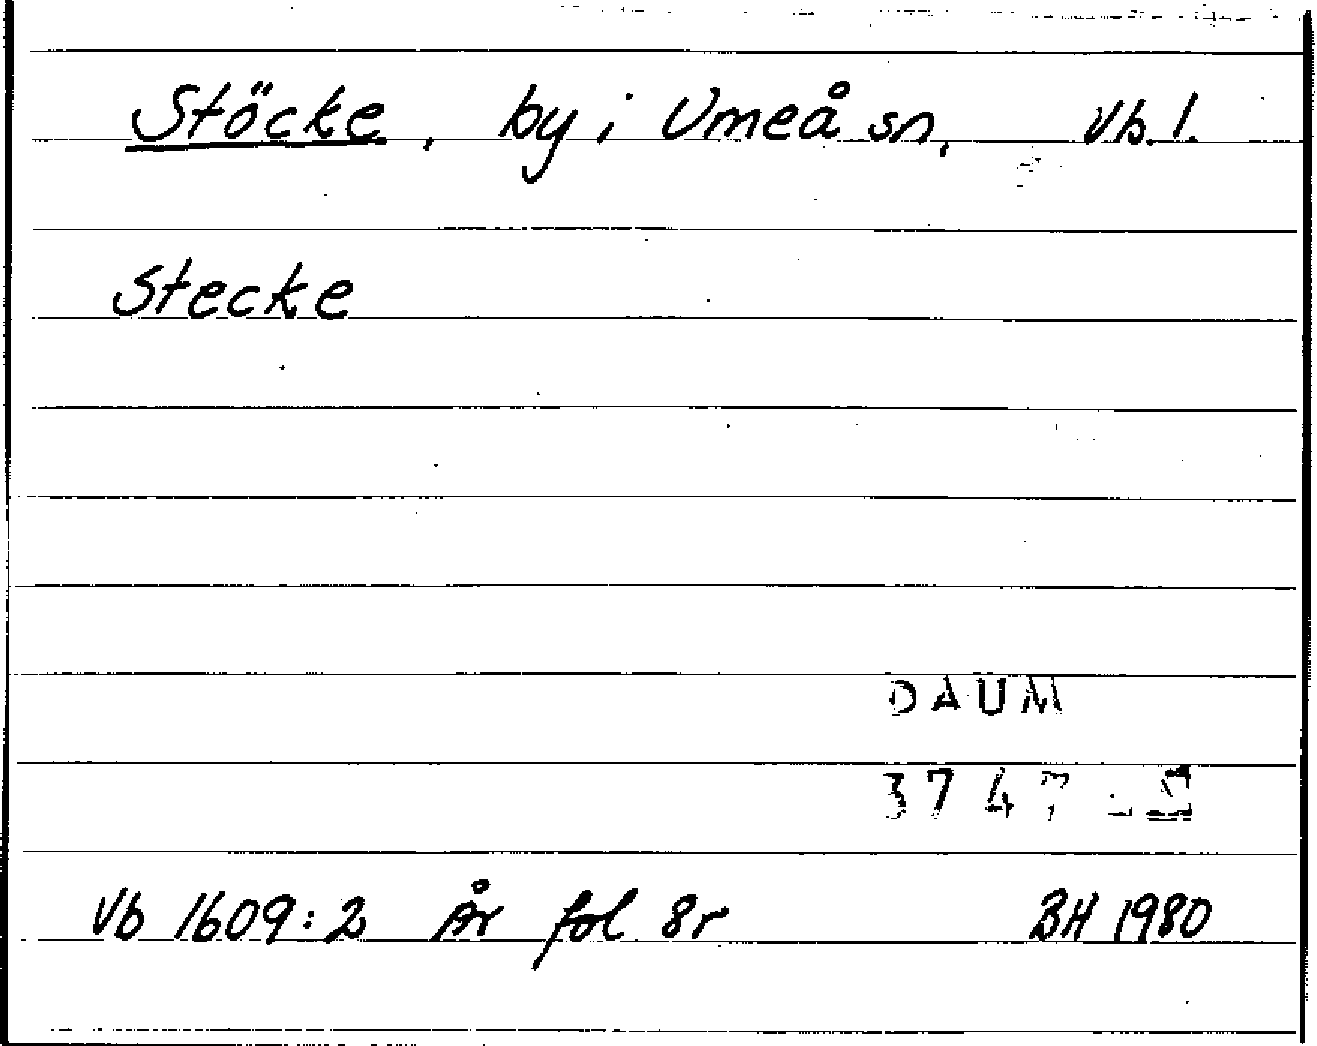 Stöcke, by i Umeå sn, Vb. l.
Stecke
DAUM
3747
Vb 1609:2 År fol 8r BH 1980